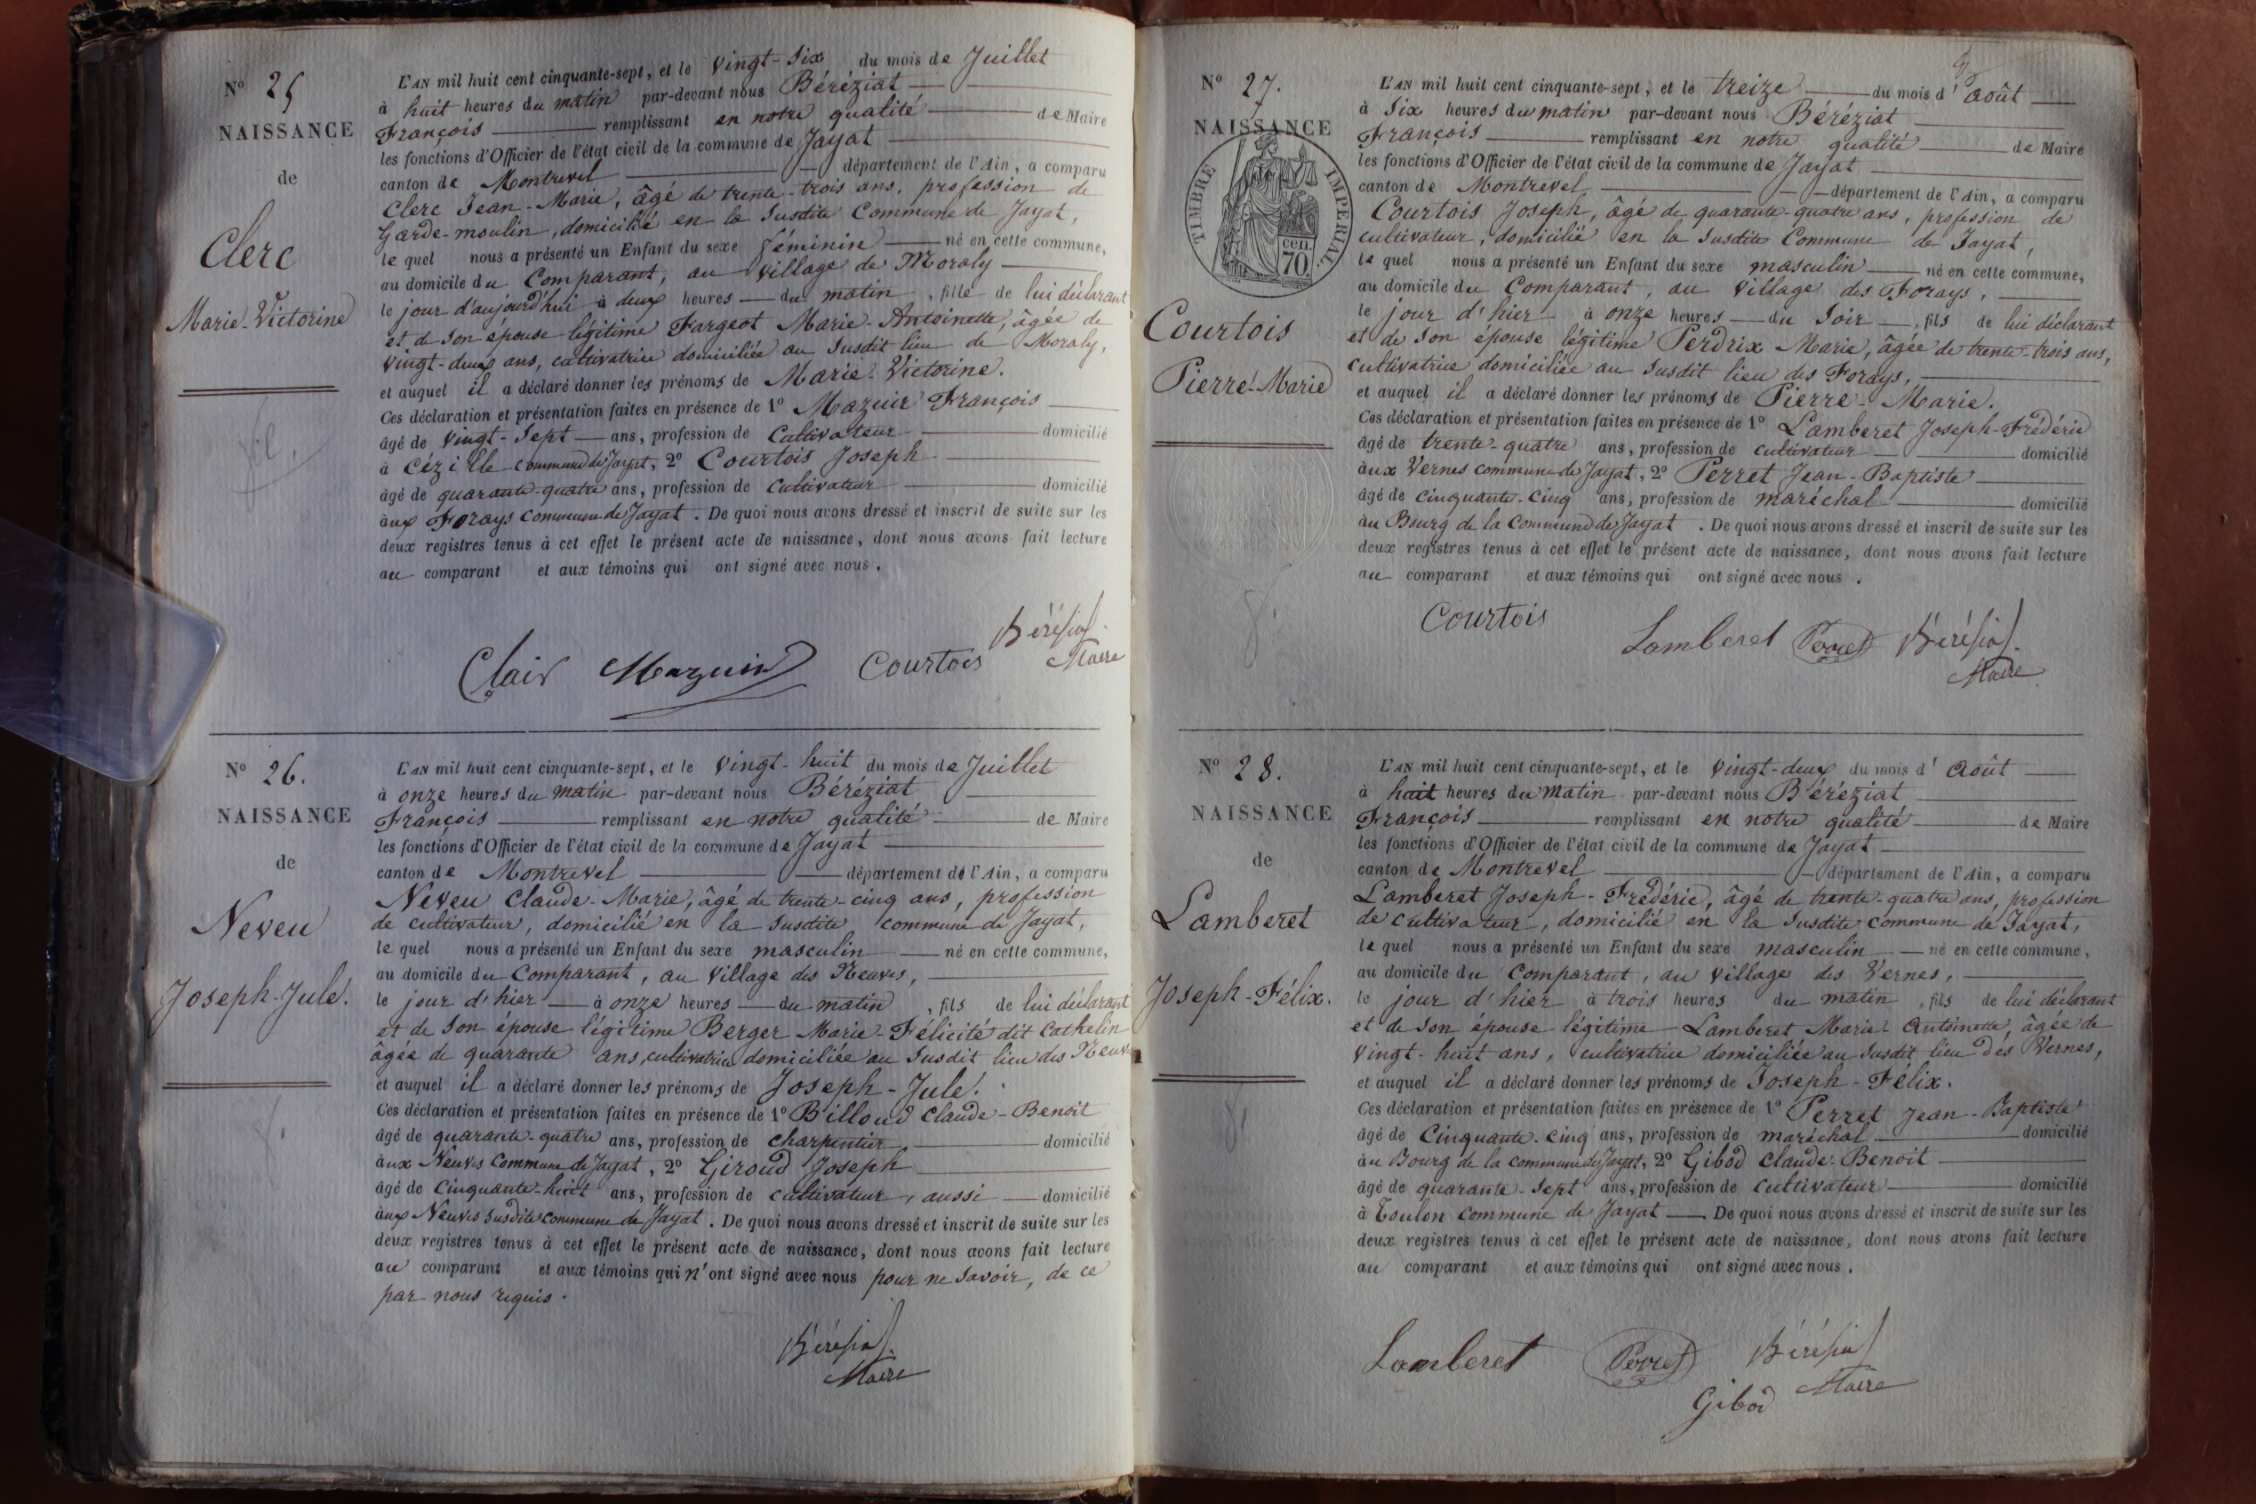 N° 25
NAISSANCE
de
Clerc
Marie-Victorine
L'AN mil huit cent cinquante-sept, et le vingt-six du mois de Juillet
à huit heures du matin par-devant nous Béréziat
François remplissant en notre qualité de Maire
les fonctions d'Officier de l'état civil de la commune de Jayat
canton de Montrevel département de l'Ain, a comparu
Clerc Jean-Marie, âgé de trente-trois ans, profession de
Garde-moulin, domicilié en la susdite Commune de Jayat,
le quel nous a présenté un Enfant du sexe féminin né en cette commune,
au domicile du Comparant, au village de Moraly
le jour d'aujourd'hui à deux heures du matin, fille de lui déclarant
et de son épouse légitime Fargeot Marie-Antoinette, âgée de
vingt-deux ans, cultivatrice domiciliée au susdit lieu de Moraly,
et auquel il a déclaré donner les prénoms de Marie-Victorine.
Ces déclaration et présentation faites en présence de 1° Mazuir François
âgé de vingt-sept ans, profession de Cultivateur domicilié
à Cézille commune de Jayat, 2° Courtois Joseph
âgé de quarante-quatre ans, profession de Cultivateur domicilié
aux Forays commune de Jayat. De quoi nous avons dressé et inscrit de suite sur les
deux registres tenus à cet effet le présent acte de naissance, dont nous avons fait lecture
au comparant et aux témoins qui ont signé avec nous.
Clair Mazuir Courtois Bérésiat
Maire
N° 26.
NAISSANCE
de
Neveu
Joseph-Jule.
L'AN mil huit cent cinquante-sept, et le vingt-huit du mois de Juillet
à onze heures du matin par-devant nous Béréziat
François remplissant en notre qualité de Maire
les fonctions d'Officier de l'état civil de la commune de Jayat
canton de Montrevel département de l'Ain, a comparu
Neveu Claude-Marie, âgé de trente-cinq ans, profession
de cultivateur, domicilié en la susdite commune de Jayat,
le quel nous a présenté un Enfant du sexe masculin né en cette commune,
au domicile du Comparant, au village des Neuves,
le jour d'hier à onze heures du matin, fils de lui déclarant
et de son épouse légitime Berger Marie-Félicité dit Cathelin
âgée de quarante ans, cultivatrice domiciliée au susdit lieu des Neuves
et auquel il a déclaré donner les prénoms de Joseph-Jule.
Ces déclaration et présentation faites en présence de 1° Billoud Claude-Benoit
âgé de quarante-quatre ans, profession de charpentier, domicilié
aux Neuves commune de Jayat, 2° Giroud Joseph
âgé de cinquante-huit ans, profession de cultivateur, aussi domicilié
aux Neuves susdite commune de Jayat. De quoi nous avons dressé et inscrit de suite sur les
deux registres tenus à cet effet le présent acte de naissance, dont nous avons fait lecture
au comparant et aux témoins qui n'ont signé avec nous pour ne savoir, de ce
par nous requis.
Bérésiat
Maire
N° 27.
NAISSANCE
TIMBRE IMPERIAL
cen.
70.
Courtois
Pierre-Marie
L'AN mil huit cent cinquante-sept, et le treize du mois d'août
à six heures du matin par-devant nous Béréziat
François remplissant en notre qualité de Maire
les fonctions d'Officier de l'état civil de la commune de Jayat
canton de Montrevel département de l'Ain, a comparu
Courtois Joseph, âgé de quarante-quatre ans, profession de
cultivateur, domicilié en la susdite Commune de Jayat,
le quel nous a présenté un Enfant du sexe masculin né en cette commune,
au domicile du Comparant, au village des Forays,
le jour d'hier à onze heures du soir, fils de lui déclarant
et de son épouse légitime Perdrix Marie, âgée de trente-trois ans,
cultivatrice domiciliée au susdit lieu des Forays,
et auquel il a déclaré donner les prénoms de Pierre-Marie.
Ces déclaration et présentation faites en présence de 1° Lamberet Joseph-Frédéric
âgé de trente-quatre ans, profession de cultivateur domicilié
aux Vernes commune de Jayat, 2° Perret Jean-Baptiste
âgé de cinquante-cinq ans, profession de maréchal domicilié
au Bourg de la commune de Jayat. De quoi nous avons dressé et inscrit de suite sur les
deux registres tenus à cet effet le présent acte de naissance, dont nous avons fait lecture
au comparant et aux témoins qui ont signé avec nous.
Courtois Lamberet Perret Bérésiat
Maire
N° 28.
NAISSANCE
de
Lamberet
Joseph-Félix.
L'AN mil huit cent cinquante-sept, et le vingt-deux du mois d'août
à huit heures du matin par-devant nous Béréziat
François remplissant en notre qualité de Maire
les fonctions d'Officier de l'état civil de la commune de Jayat
canton de Montrevel département de l'Ain, a comparu
Lamberet Joseph-Frédéric, âgé de trente-quatre ans, profession
de cultivateur, domicilié en la susdite commune de Jayat,
le quel nous a présenté un Enfant du sexe masculin né en cette commune,
au domicile du Comparant, au village des Vernes,
le jour d'hier à trois heures du matin, fils de lui déclarant
et de son épouse légitime Lamberet Marie-Antoinette, âgée de
vingt-huit ans, cultivatrice domiciliée au susdit lieu des Vernes,
et auquel il a déclaré donner les prénoms de Joseph-Félix.
Ces déclaration et présentation faites en présence de 1° Perret Jean-Baptiste
âgé de Cinquante-cinq ans, profession de maréchal domicilié
au Bourg de la commune de Jayat, 2° Gibod Claude-Benoit
âgé de quarante-sept ans, profession de cultivateur domicilié
à Toulon commune de Jayat De quoi nous avons dressé et inscrit de suite sur les
deux registres tenus à cet effet le présent acte de naissance, dont nous avons fait lecture
au comparant et aux témoins qui ont signé avec nous.
Lamberet Perret Bérésiat
Gibod Maire